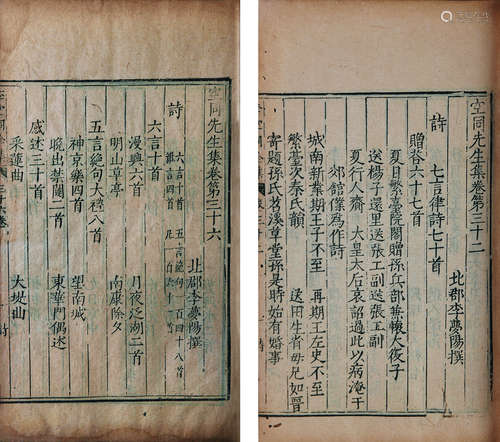 空同先生集卷第三十二
北郡李夢陽撰
詩 七言律詩七十首
贈荅六十七首
夏日繁臺院閣贈孫兵部兼懷大復子
送楊子還里送張工副送張工副
夏行人齋 大皇太后哀詔過此以病淹于
郊館僚爲作詩
城南新業期王子不至 再期王左史不至
繁臺次秦氏韻 送田生省母兄如晉
寄題孫氏茗溪草堂孫是時始有婚事
空同先生集卷第三十六
北郡李夢陽撰
詩 六言十首 五言絕句一百四十八首
雜言四首 凡一百六十二首
六言十首
漫興六首 月夜泛湖二首
明山草亭 南康除夕
五言絕句大禮八首
神京樂四首 望南城
晚出禁闈二首 東華門偶述
感述三十首
采蓮曲 大堤曲